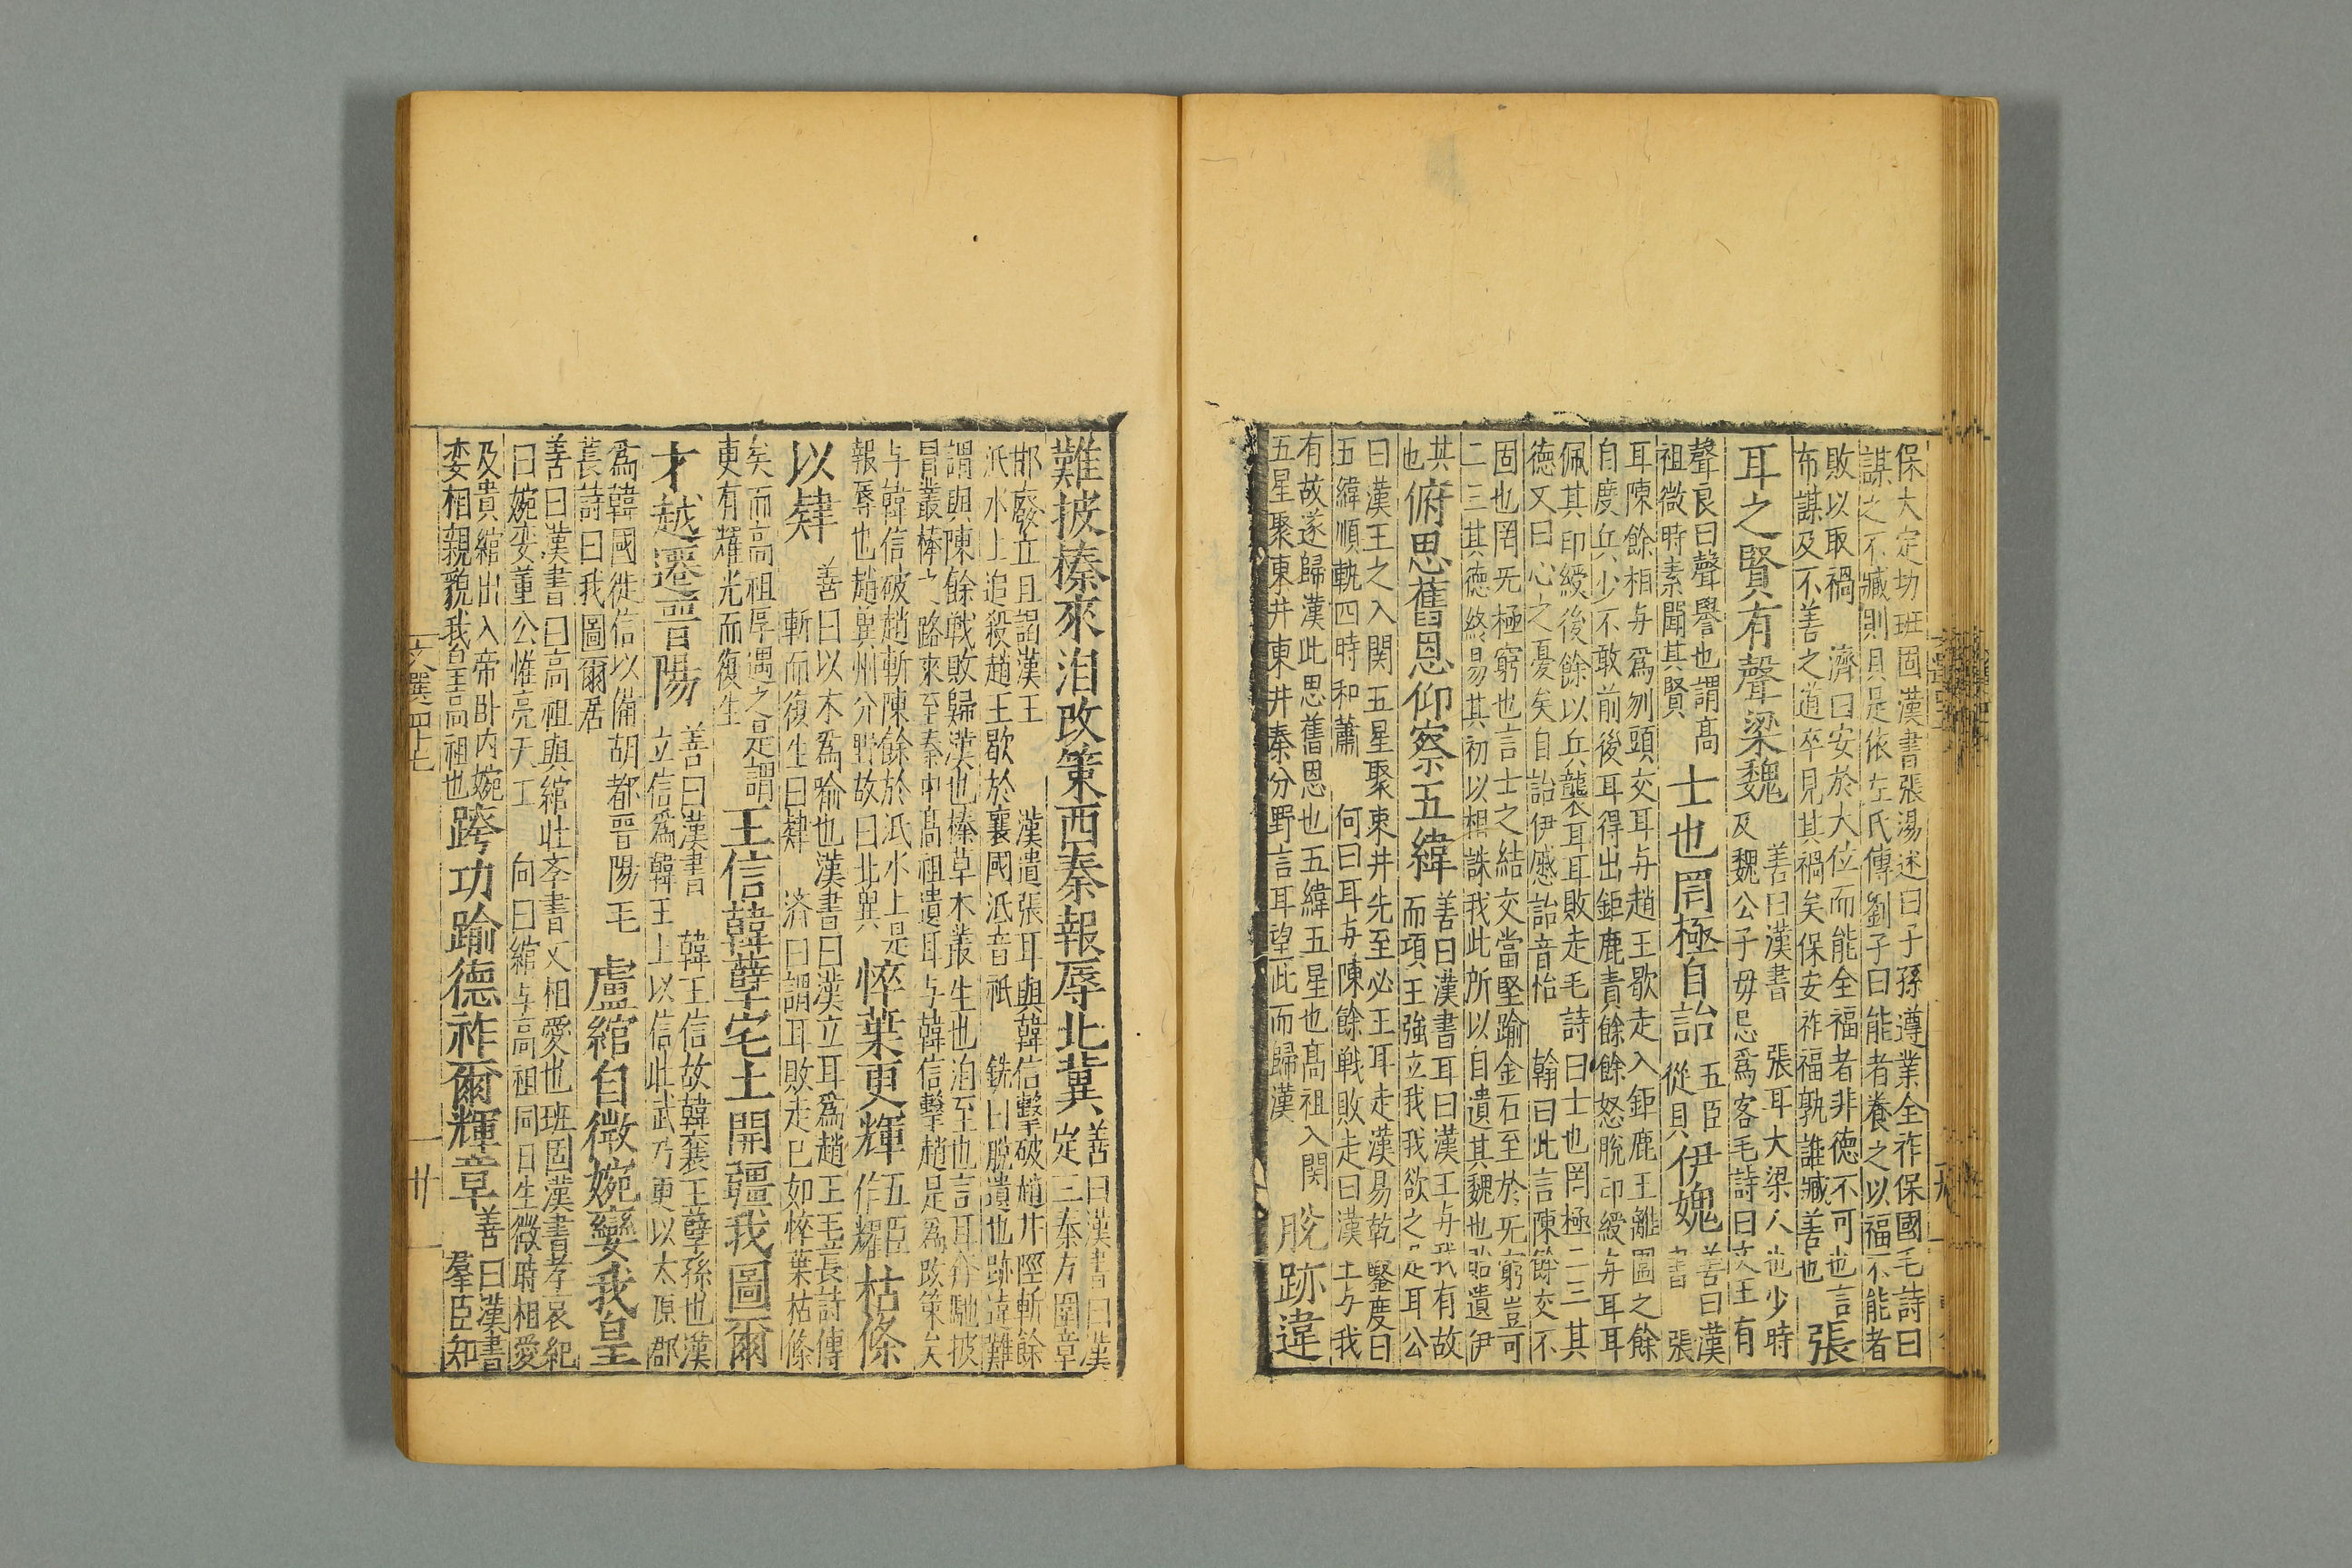 保大定功班固漢書張湯述曰子孫遵業全祚保國毛詩曰
謀之不臧則具是依左氏傳劉子曰能者養之以福不能者
敗以取禍　濟曰安於大位而能全福者非德不可也言
布謀及不善之道卒見其禍矣保安祚福孰誰臧善也
張
耳之賢有聲梁魏
善曰漢書　張耳大梁人也少時
及魏公子毋忌爲客毛詩曰文王有
聲良曰聲譽也謂高
祖微時素聞其賢
士也罔極自詒
五臣
從貝
伊媿
善曰漢
書　張
耳陳餘相与爲刎頭交耳与趙王歇走入鉅鹿王離圍之餘
自度兵少不敢前後耳得出鉅鹿責餘餘怒脫印綬与耳耳
佩其印綬後餘以兵襲耳耳敗走毛詩曰士也罔極二三其
德又曰心之憂矣自詒伊慼詒音怡　翰曰此言陳餘交不
固也罔旡極窮也言士之結交當堅踰金石至於旡窮豈可
二三其德終易其初以相誅我此所以自遺其魏也貽遺伊
其
也
俯思舊恩仰察五緯
善曰漢書耳曰漢王与我有故
而項王強立我我欲之楚耳公
曰漢王之入関五星聚東井先至必王耳走漢易乾鑿度曰
五緯順軌四時和蕭　何曰耳与陳餘戰敗走曰漢王与我
有故遂歸漢此思舊恩也五緯五星也高祖入関
五星聚東井東井秦分野言耳望此而歸漢
脫跡違
難披榛來洎改策西秦報辱北冀
善曰漢書曰漢
定三秦方圍章
邯廢立且謁漢王　漢遣張耳與韓信擊破趙井陘斬餘
泜水上追殺趙王歇於襄國泜音祇　銑曰脫遺也跡違難
謂與陳餘戰敗歸漢也榛草木叢生也洎至也言耳奔馳披
冒叢榛之路來至秦中高祖遺耳与韓信擊趙是爲改策矣
与韓信破趙斬陳餘於泜水上是
報辱也趙冀州分野故曰北冀
悴葉更輝
五臣
作耀
枯條
以肄
善曰以木爲喻也漢書曰漢立耳爲趙王毛萇詩傳
斬而復生曰肄　済曰謂耳敗走已如悴葉枯條
矣而高祖厚遇之是謂
更有耀光而復生
王信韓孽宅土開疆我圖爾
才越遷晉陽
善曰漢書　韓王信故韓襄王孽孫也漢
立信爲韓王上以信壯武乃更以太原郡
爲韓國徙信以備胡都晉陽毛
萇詩曰我圖爾居
盧綰自微婉孌我皇
善曰漢書曰高祖與綰壯孝書又相愛也班固漢書孝哀紀
曰婉孌董公惟亮天工　向曰綰与高祖同日生微時相愛
及貴綰出入帝卧內婉
孌相親貌我皇高祖也
跨功踰德祚爾輝章
善曰漢書
羣臣知
文選四十七
廿